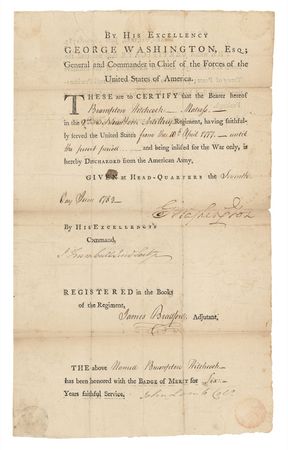 BY HIS EXCELLENCY
GEORGE WASHINGTON, Esq;
General and Commander in Chief of the Forces of the
United States of America.
THESE are to CERTIFY that the Bearer hereof
Brumpton Hitchcock Matross
in the 2nd Artillery Regiment, having faithful-
ly served the United States from the 10th April 1777. until
the present period and being inlisted for the War only, is
hereby DISCHARGED from the American Army,
GIVEN at HEAD-QUARTERS the Seventh
Day June 1783
GWashington
BY HIS EXCELLENCY'S
Command,
J Trumbull Jun Secty
REGISTERED in the Books
of the Regiment,
James Bradford Adjutant,
THE above Named Brumpton Hitchcock
has been honored with the BADGE of MERIT for Six
Years faithful Service. John Lamb Colo